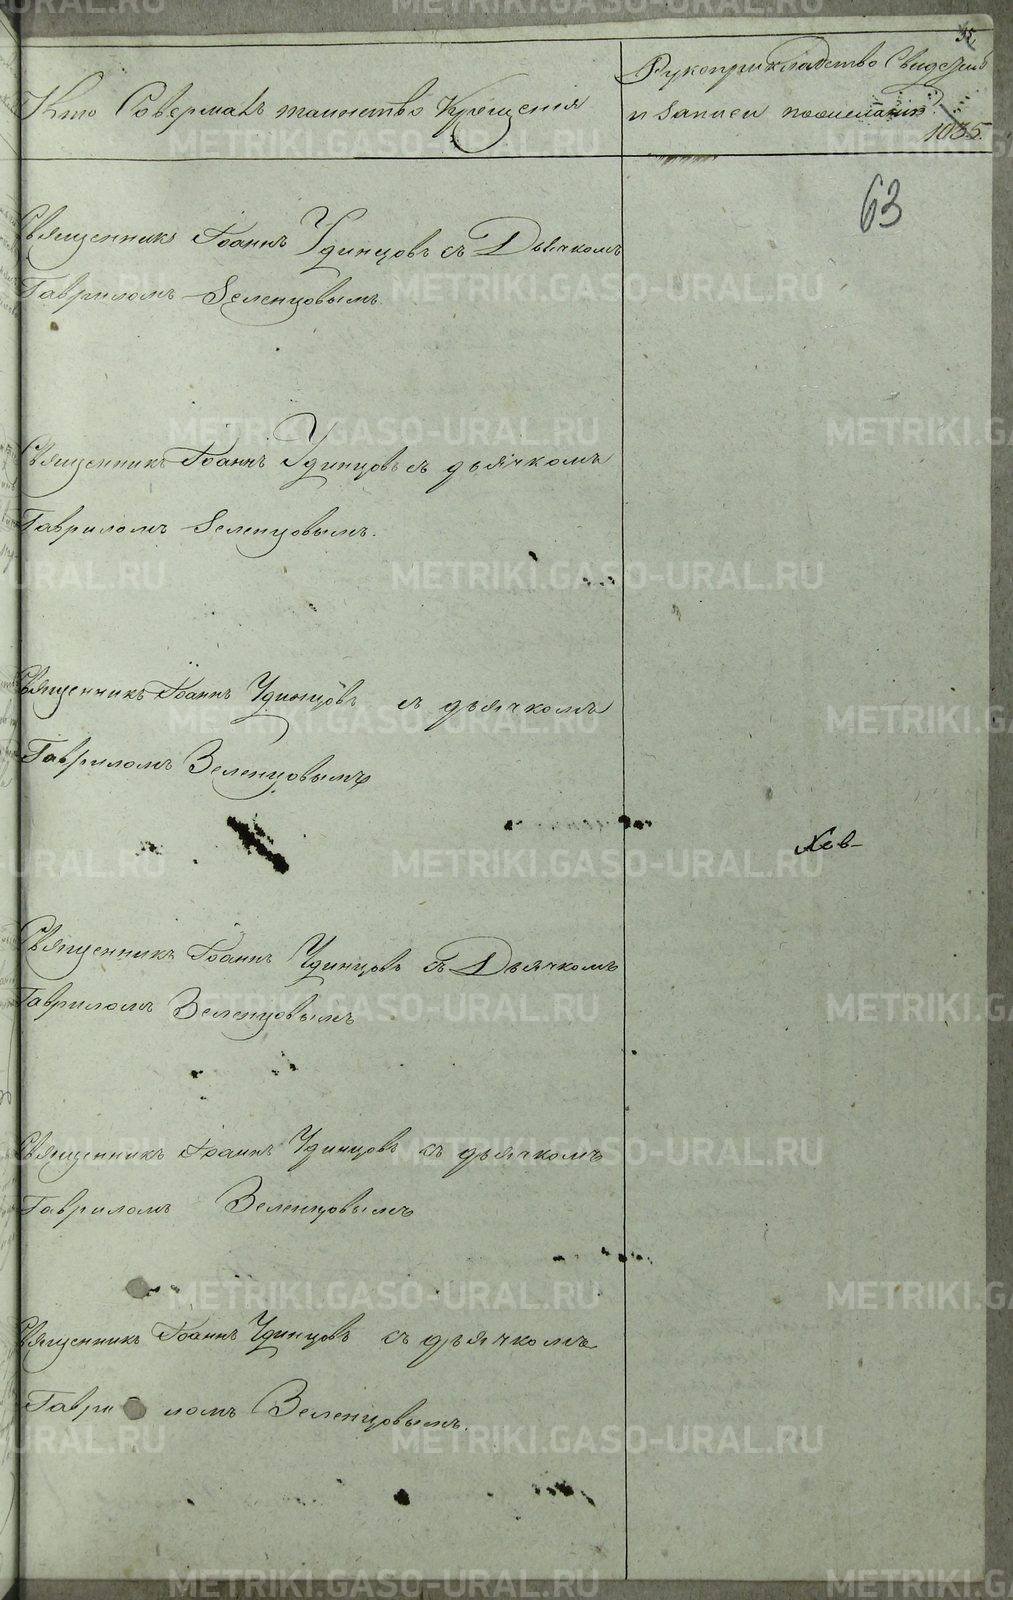 35
Кто Совершалъ таинство Крещенія
Рукоприкладство Свидетелей
и записи по желанию
1035.
63
Священникъ Іоаннъ Удинцовъ съ Дьячкомъ
Гавриломъ Зеленцовымъ
Священникъ Іоаннъ Удинцовъ съ дьячкомъ
Гавриломъ Зеленцовымъ.
Священникъ Іоаннъ Удинцовъ съ дьячкомъ
Гавриломъ Зеленцовымъ
Священникъ Іоаннъ Удинцовъ съ Дьячкомъ
Гавриломъ Зеленцовымъ
Священникъ Іоаннъ Удинцовъ съ дьячкомъ
Гавриломъ Зеленцовымъ
Священникъ Іоаннъ Удинцовъ съ дьячкомъ
Гавриломъ Зеленцовымъ.
METRIKI.GASO-URAL.RU